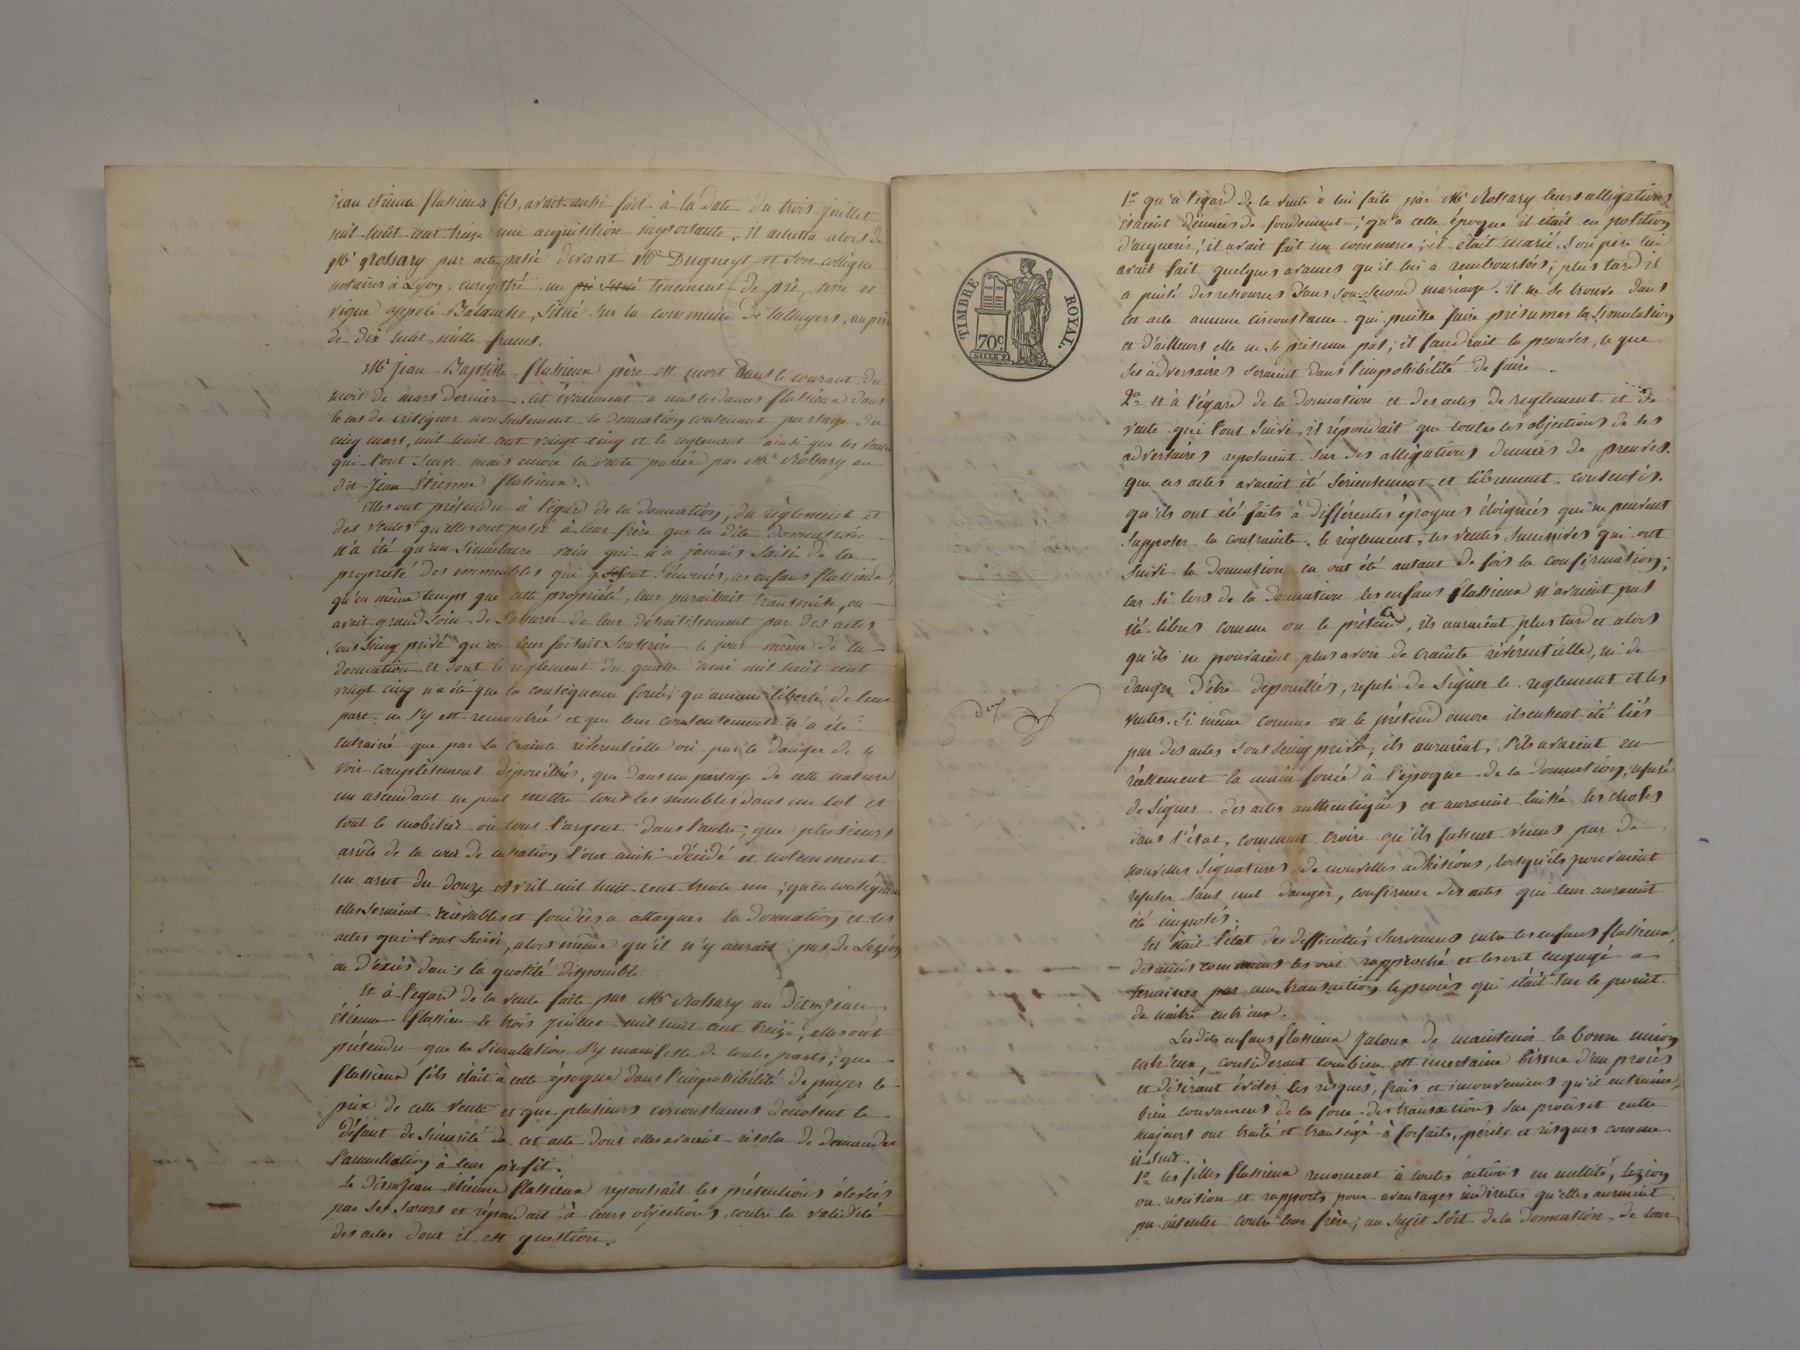 jean etienne flassieux fils, avait aussi fait à la date du trois juillet
mil huit cent treize une acquisition importante. il acheta alors de
Mr Rossary par acte passé devant Me Dugueyt et son collègue
notaires à Lyon, enregistré, un pré tenement de pré, terre et
vigne appelé situé sur la commune de au prix
de dix huit mille francs.
Mr jean Baptiste flassieux père est mort dans le courant du
mois de mars dernier. cet évènement a mis les dames flassieux dans
le cas de critiquer non seulement la donation contenant partage du
cinq mars, mil huit cent vingt cinq et le reglement ainsi que les ventes
qui l'ont suivi mais encore la vente passée par Mr Rossary au
dit Jean Etienne flassieux.
Elles ont prétendu à l'égard de la donation, du règlement et
des ventes qu'elles ont passé à leur frère que la dite donation
n'a été qu'un simulacre vain qui n'a jamais saisi de la
propriété des immeubles qui y sont énoncés, les enfans flassieux;
qu'en même temps que cette propriété, leur paraissait transmise, on
avait grand soin de s'assurer de leur désaisissement par des actes
sous seing privé qu'on leur faisait souscrire le jour même de la
donation et dont le reglement du quatre mai mil huit cent
vingt cinq n'a été que la conséquence forcée; qu'aucune liberté de leur
part ne s'y est rencontrée et que leur consentement n'a été
entrainé que par la crainte révérentielle ou par le danger de se
voir complètement dépouillés, que dans un partage de cette nature
un ascendant ne peut mettre tous les meubles dans un lot et
tout le mobilier ou tous l'argent dans l'autre; que plusieurs
arrêts de la cour de cassation l'ont ainsi décidé et notamment
un arret du douze avril mil huit cent trente un; qu'en conséquence
elles seraient recevables et fondées a attaquer la donation et les
actes qui l'ont suivi, alors même qu'il n'y aurait pas de Lezion
ou d'excès dans la quotité disponible
Et à l'égard de la vente faite par Mr Rossary au dit jean
étienne flassieux le trois juillet mil huit cent treize, elles ont
prétendu que la simulation s'y manifeste de toutes parts; que
flassieux fils était à cette époque dans l'impossibilité de payer le
prix de cette vente et que plusieurs circonstances dénotent le
défaut de sincérité de cet acte dont elles avaient résolu de demander
l'annullation à leur profit.
Le dit jean etienne flassieux repoussait les prétentions élevées
par ses sœurs et répondait à leurs objections contre la validité
des actes dont il est question.
TIMBRE ROYAL.
70c
1ent qu'à l'égard de la vente à lui faite par Mr Rossary leurs allégations
étaient dénuées de fondement; qu'à cette époque il était en position
d'acquerir; il avait fait un commerce; il était marié, son père lui
avait fait quelques avances qu'il lui a remboursées; plus tard il
a puisé des ressources dans son second mariage. il ne se trouve dans
cet acte aucune circonstance qui puisse faire présumer la simulation
et d'ailleurs elle ne se présume pas; il faudrait la prouver, ce que
ses adversaires seraient dans l'impossibilité de faire.
2ent et à l'égard de la donation et des actes de reglement et de
vente qui l'ont suivi, il répondait que toutes les objections de ses
adversaires reposaient sur des allégations dénuées de preuves.
que ces actes avaient été sérieusement et librement consentis.
qu'ils ont été faits à différentes époques éloignées qui ne peuvent
supposer la contrainte. le réglement, les ventes successives qui ont
suivi la donation en ont été autant de fois la confirmation;
car si lors de la donation les enfans flassieux n'avaient pas
été libres comme on le prétend, ils auraient plus tard et alors
qu'ils ne pouvaient plus avoir de crainte révérentielle, ni de
danger d'être dépouillés, refusé de signer le reglement et les
ventes. Si même comme on le prétend encore ils eussent été liés
par des actes sous seing privé, ils auraient, s'ils avaient eu
réellement la main forcée à l'époque de la donation, refusé
de signer des actes authentiques et auraient laissé les choses
dans l'état, comment croire qu'ils fussent venus par de
nouvelles signatures, de nouvelles adhésions, lorsqu'ils pouvaient
refuser sans nul danger, confirmer des actes qui leur auraient
été imposés.
Tel était l'état des difficultés survenues entre les enfans flassieux,
des amis communs les ont rapproché et les ont engagé a
terminer par une transaction le procès qui était sur le point
de naitre entr'eux.
Les dits enfans flassieux jaloux de maintenir la bonne union
entr'eux, considérant combien est incertaine l'issue d'un procès
et désirant éviter les risques, frais et inconveniens qu'il entraine,
bien convaincus de la force des transactions sur procès et entre
majeurs ont traité et transigé à forfaits, périls et risques comme
il suit.
1ent les filles flassieux renoncent à toutes actions en nullité, lezion
ou rescision et rapports pour avantages indirects qu'elles auraient
pu intenter contre leur frère, au sujet soit de la donation de leur